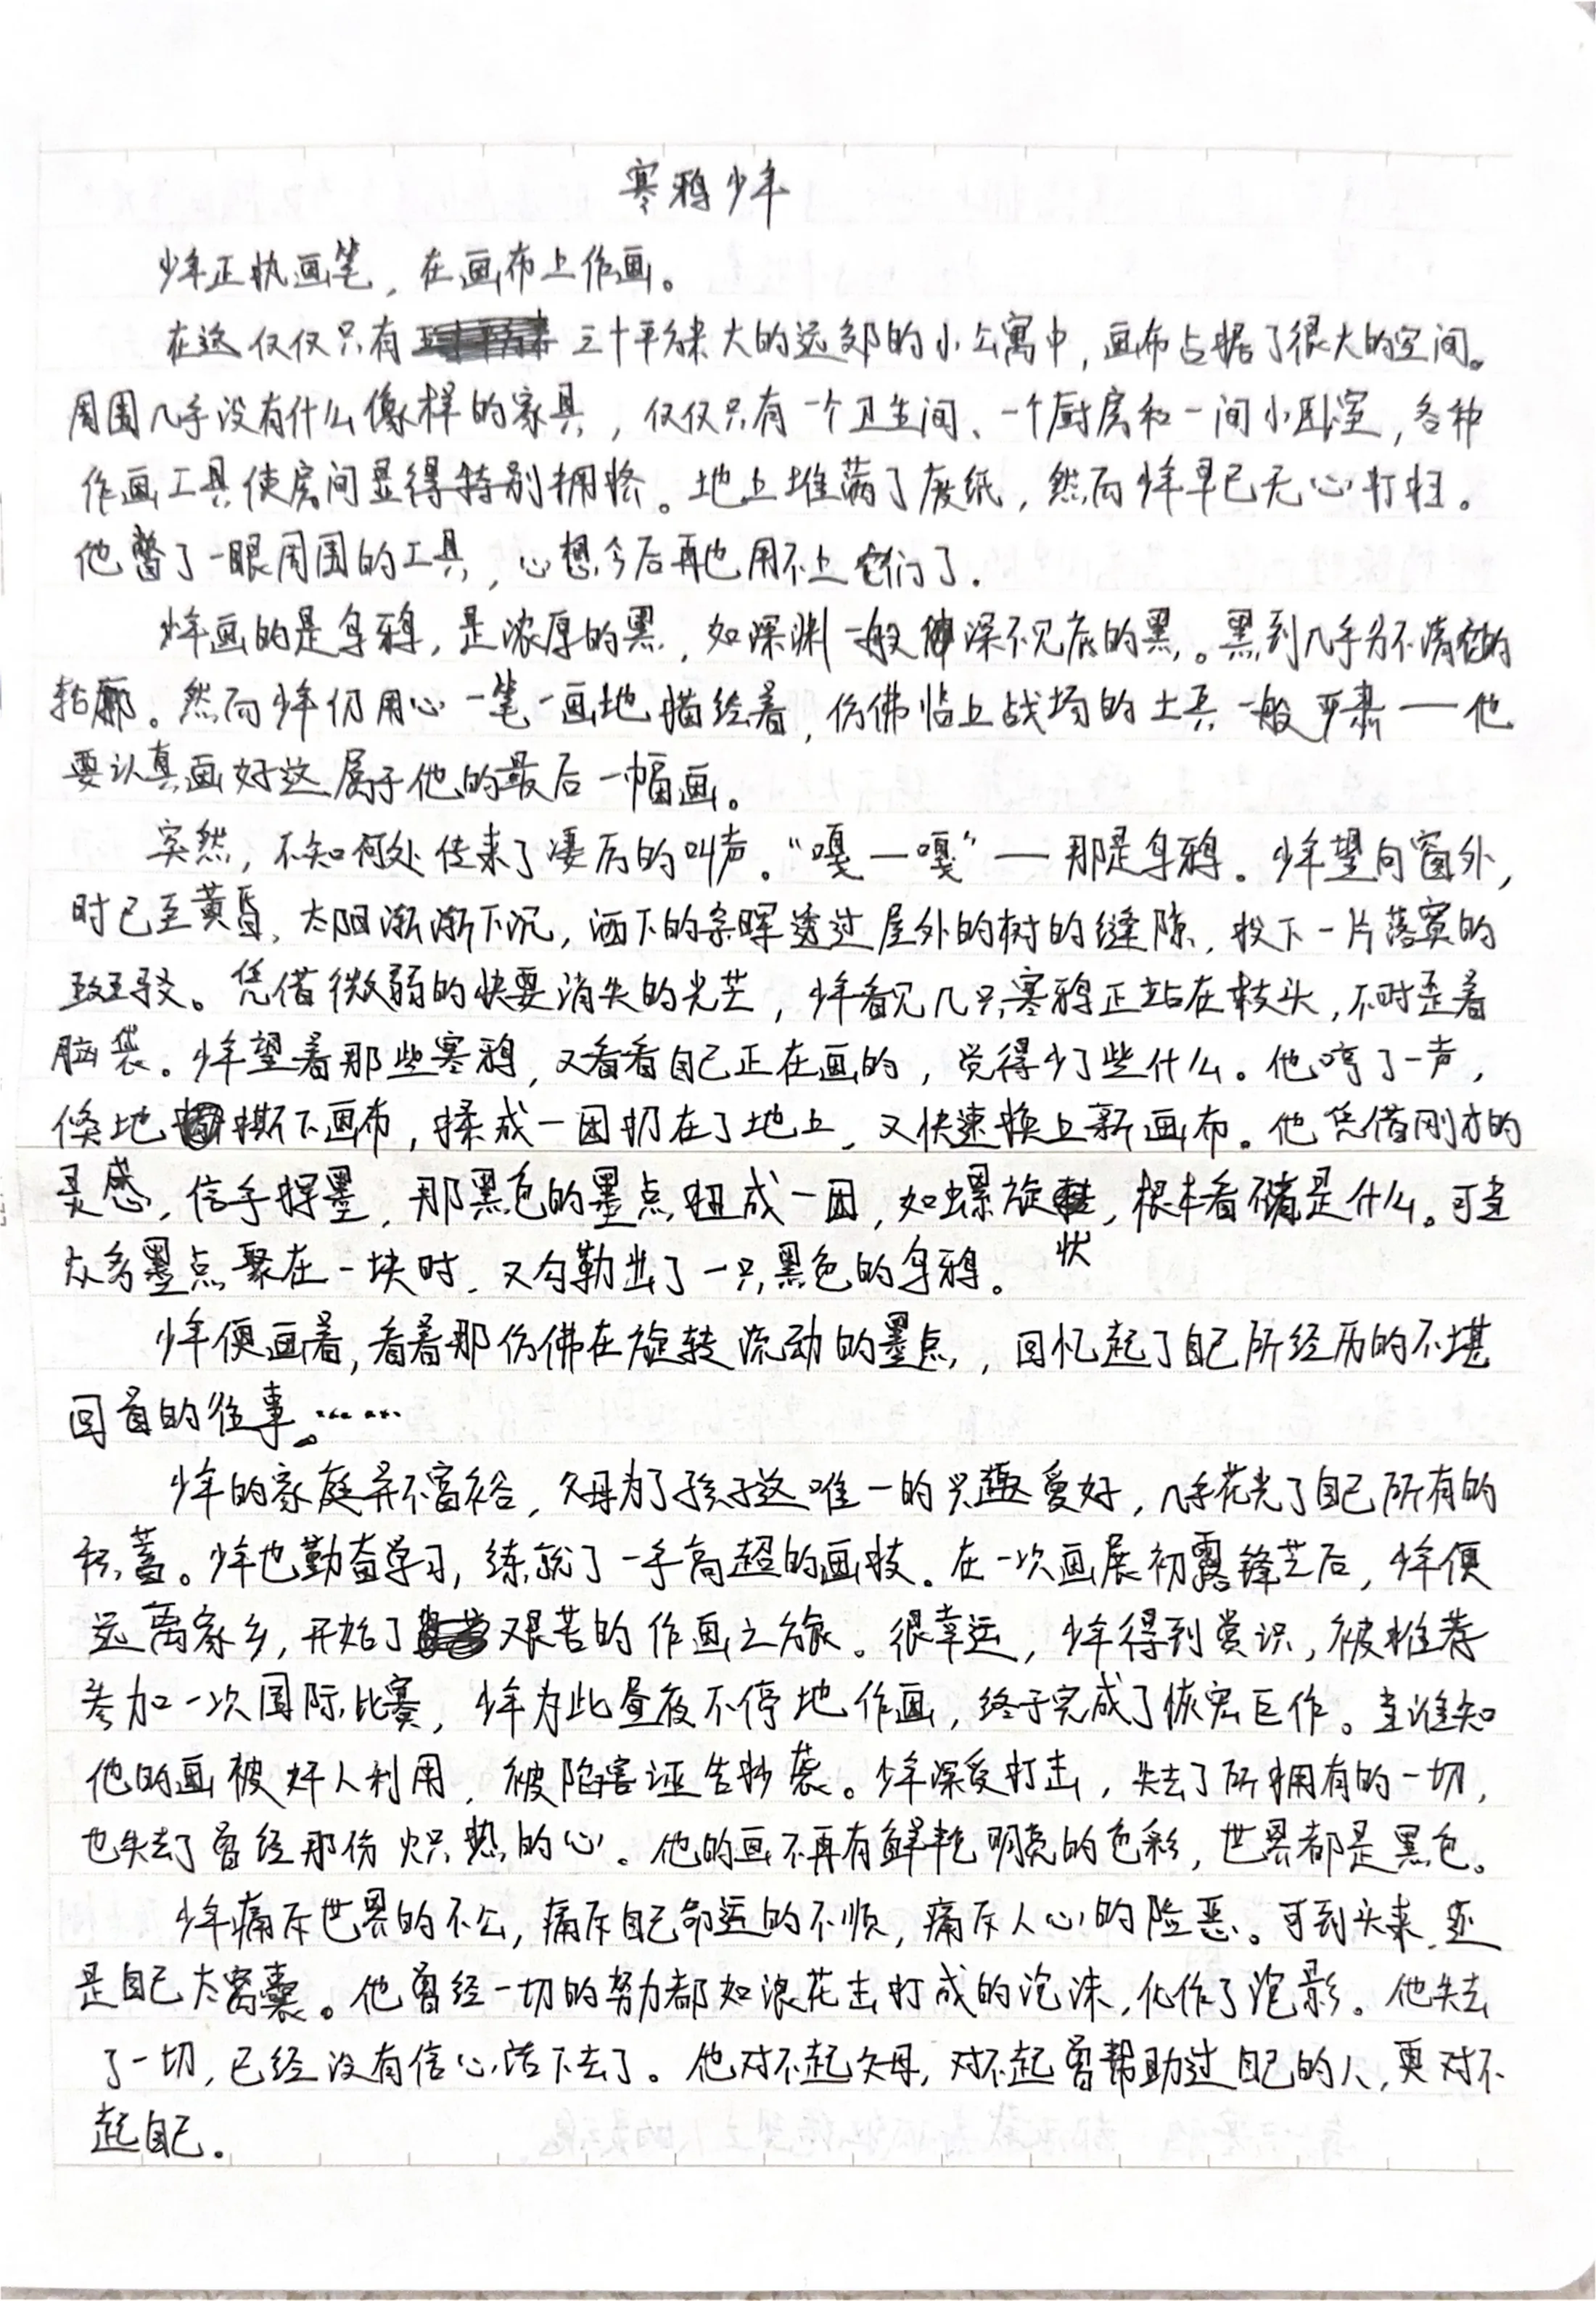 寒鸦少年
少年正执画笔，在画布上作画。
在这仅仅只有三十平方米大的远郊的小公寓中，画布占据了很大的空间。
周围几乎没有什么像样的家具，仅仅只有一个卫生间、一个厨房和一间小卧室，各种
作画工具使房间显得特别拥挤。地上堆满了废纸，然而少年早已无心打扫。
他瞥了一眼周围的工具，心想今后再也用不上它们了。
少年画的是乌鸦，是浓厚的黑，如深渊一般深不见底的黑。黑到几乎分不清它的
轮廓。然而少年仍用心一笔一画地描绘着，仿佛临上战场的士兵一般严肃——他
要认真画好这属于他的最后一幅画。
突然，不知何处传来了凄厉的叫声。“嘎—嘎”——那是乌鸦。少年望向窗外，
时已至黄昏，太阳渐渐下沉，洒下的余晖透过屋外的树的缝隙，投下一片落寞的
斑驳。凭借微弱的快要消失的光芒，少年看见几只寒鸦正站在枝头，不时歪着
脑袋。少年望着那些寒鸦，又看看自己正在画的，觉得少了些什么。他哼了一声，
倏地撕下画布，揉成一团扔在了地上，又快速换上新画布。他凭借刚才的
灵感，信手挥墨，那黑色的墨点扭成一团，如螺旋状，根本看不清是什么。可当
众多墨点聚在一块时，又勾勒出了一只黑色的乌鸦。
少年便画着，看着那仿佛在旋转流动的墨点，回忆起了自己所经历的不堪
回首的往事。……
少年的家庭并不富裕，父母为了孩子这唯一的兴趣爱好，几乎花光了自己所有的
积蓄。少年也勤奋学习，练就了一手高超的画技。在一次画展初露锋芒后，少年便
远离家乡，开始了艰苦的作画之旅。很幸运，少年得到赏识，被推荐
参加一次国际比赛，少年为此昼夜不停地作画，终于完成了恢宏巨作。当谁知
他的画被奸人利用，被陷害诬告抄袭。少年深受打击，失去了所拥有的一切，
也失去了曾经那份炽热的心。他的画不再有鲜艳明亮的色彩，世界都是黑色。
少年痛斥世界的不公，痛斥自己命运的不顺，痛斥人心的险恶。可到头来，还
是自己太窝囊。他曾经一切的努力都如浪花击打成的泡沫，化作了泡影。他失去
了一切，已经没有信心活下去了。他对不起父母，对不起曾帮助过自己的人，更对不
起自己。